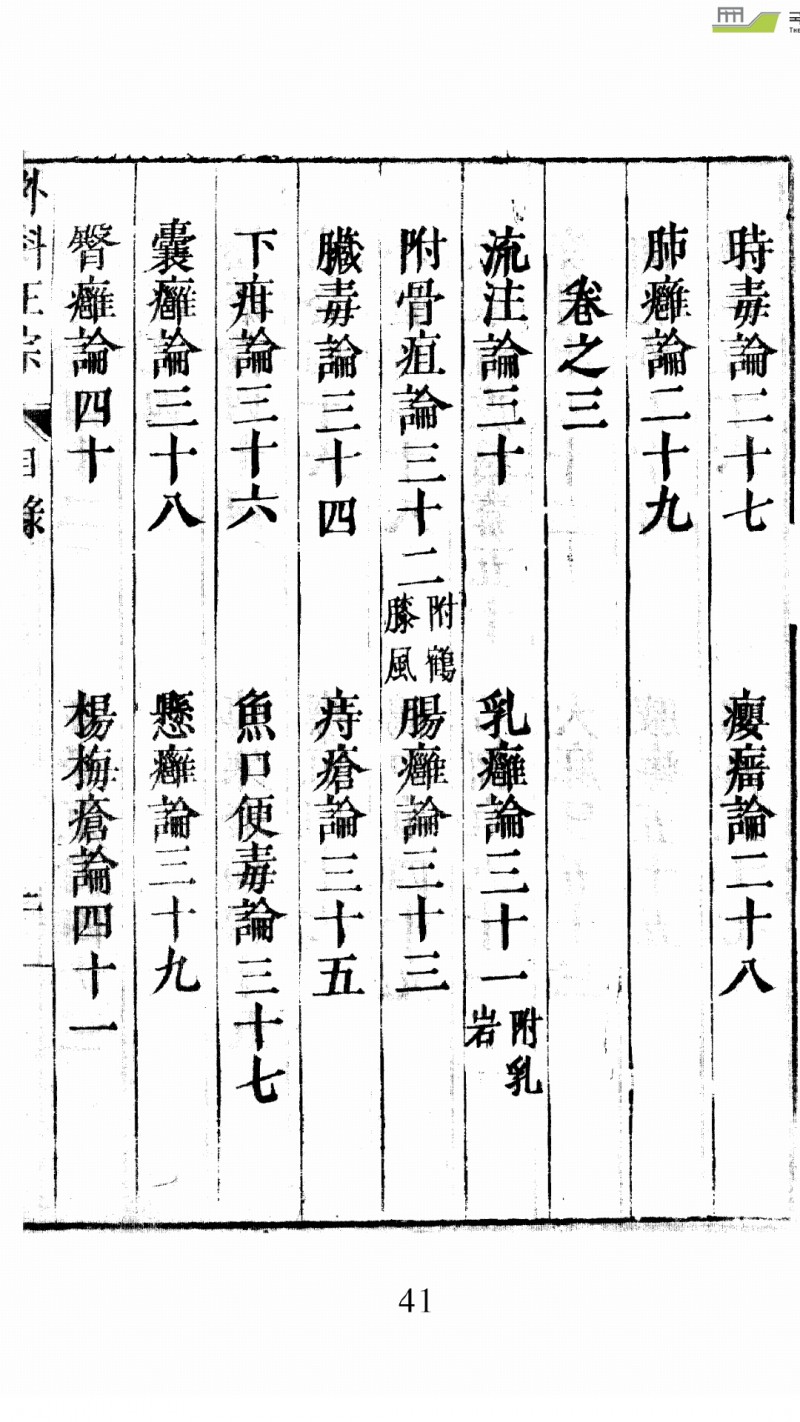 時毒論二十七 癭瘤論二十八
肺癰論二十九
卷之三
流注論三十 乳癰論三十一 附乳岩
附骨疽論三十二 附鶴膝風 腸癰論三十三
臟毒論三十四 痔瘡論三十五
下疳論三十六 魚口便毒論三十七
囊癰論三十八 懸癰論三十九
臀癰論四十 楊梅瘡論四十一
外科正宗 目錄
41